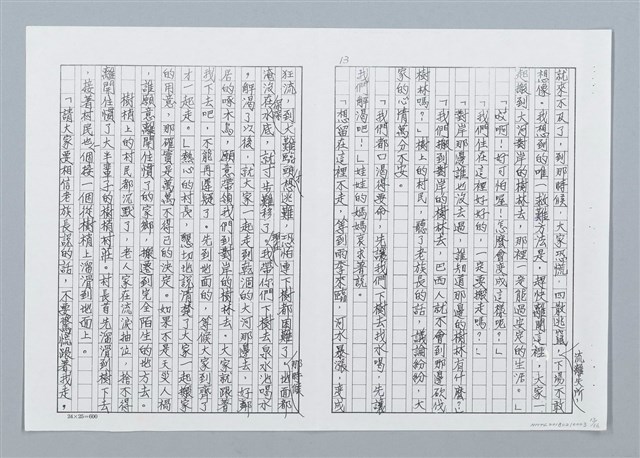 13
就來不及了，到那時候，大家恐慌，四散逃竄，下場不敢
流離失所，
想像。我想到的唯一救難方法是，趕快離開這裡，大家一
起搬到大河對岸的樹林去，那裡一定能過安定的生活。」
「哎啊！好可怕喔！怎麼會變成這樣呢？」
「我們住在這裡好好的，一定要搬走嗎？」
「對岸那邊誰也沒去過，誰知道那邊的樹林有什麼？
「我們搬到對岸的樹林去，巴西人就不會到那邊砍伐
樹林嗎？」樹上的村民，聽了老族長的話，議論紛紛，大
家的心情萬分不安。
「我們都口渴得要命，先讓我們下樹去找水喝，先讓
我們解渴吧！」娃娃的媽媽哀求著說。
「想留在這裡不走，等到雨季來臨，河水暴漲，變成
狂流，到大難臨頭想逃難，恐怕連下樹都困難了。地面都
那時候
淹沒在水底，就寸步難移了。我帶你們下樹去泉水池喝水
，解渴了以後，就大家一起走到乾涸的大河那邊去，好鄰
居的啄木鳥，願意帶領我們到對岸的樹林去。大家就跟著
我下去吧，不能再遲疑了。先到地面的，等候大家到齊了
才一起走。」熱心的村長，懇切地說清楚了大家一起搬家
的用意，那確實是萬萬不得已的決定。如果不是天災人禍
，誰願意離開住慣了的家鄉，搬遷到完全陌生的地方去。
樹梢上的村民都沉默了，老人家在流淚抽泣，捨不得
離開住慣了大半輩子的樹梢村莊。村長首先溜滑到樹下去
，接著村民也一個接一個從樹梢上溜滑到地面上。
「請大家要相信老族長說的話，不要驚慌跟著我走，
24×25＝600